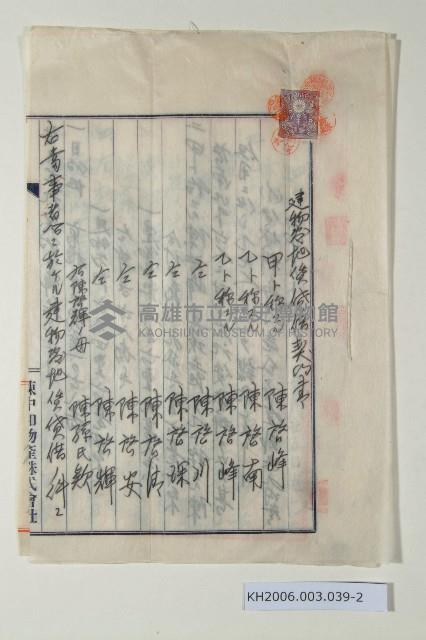 建物敷地貸借契約書
甲ト称ス 陳啓峰
乙ト称ス 陳啓南
乙ト称ス 陳啓峰
仝 陳啓川
仝 陳啓琛
仝 陳啓清
仝 陳啓安
仝 陳啓輝
右陳啓輝母 陳孫氏款
右當事者
建物敷地
貸借
陳中和物產株式會社
高雄市立歷史博物館
KAOHSIUNG MUSEUM OF HISTORY
KH2006.003.039-2